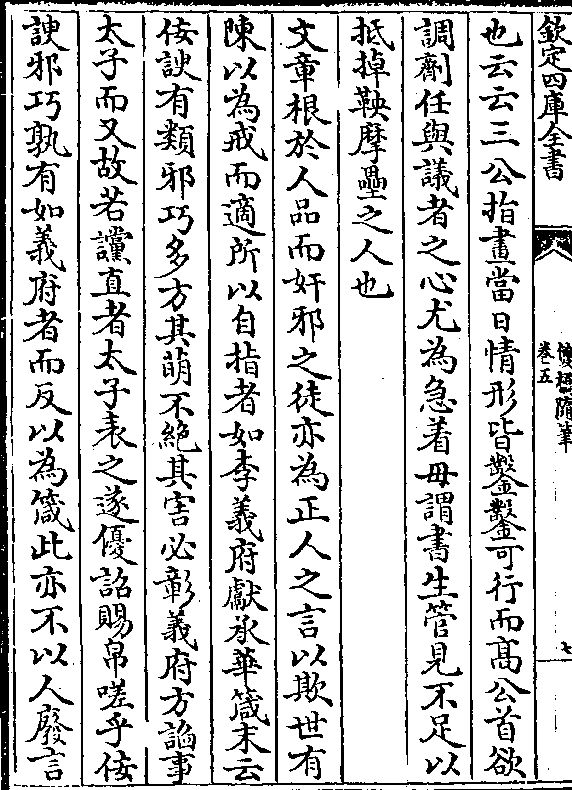 欽定四庫全書
卷五
七
也云云三公指畫當日情形皆鑿鑿可行而髙公首欲
調劑任與議者之心尤為急着毋謂書生管見不足以
抵掉鞅摩壘之人也
文章根於人品而奸邪之徒亦為正人之言以欺世有
陳以為戒而適所以自指者如李義府獻承華箴末云
佞諛有類邪巧多方其萌不絶其害必彰義府方諂事
太子而又故若讜直者太子表之遂優詔賜帛嗟乎佞
諛邪巧孰有如義府者而反以為箴此亦不以人廢言